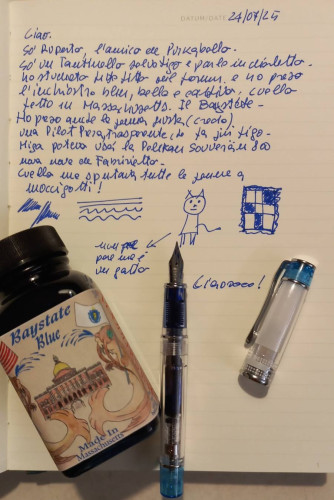 DATUM/DATE 24/07/25
Ciao.
So' Ruperto, l'amico de
So' un Tantinello selvatico e parlo in dialetto.
Ho studiato tutto tutto sul forum. e ho preso
l'inchiostro blu, bello e cattivo, quello
fatto in Massachusetts. Il Baystate.
Ho preso anche la penna giusta (credo).
una Pilot Prera trasparente, de la
Mica potevo usà la Pelikan Souverän 800
nova nova de Fabrizietto.
Quello me spuntava tutte le penne a
mozzicotti!
non
pare ma è
un gatto
Ciaoooo!
Baystate
Blue
Made In
Massachusetts